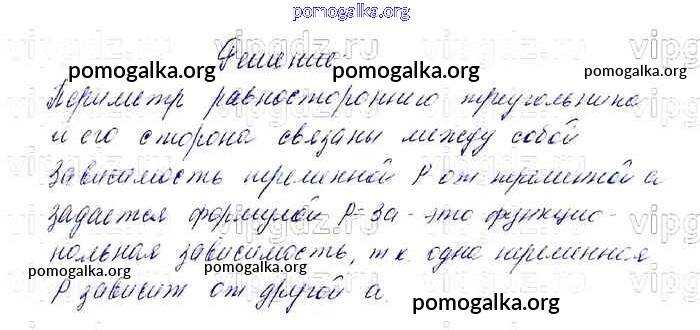 pomogalka.org
Решение.
Периметр равностороннего треугольника
и его сторона связаны между собой
Зависимость переменной P от переменной a
задается формулой P=3a - это функцио-
нольная зависимость, т к. одна переменная
P зависит от другой a.
vipgdz.ru
pomogalka.org
pomogalka.org
pomogalka.org
pomogalka.org
pomogalka.org
pomogalka.org